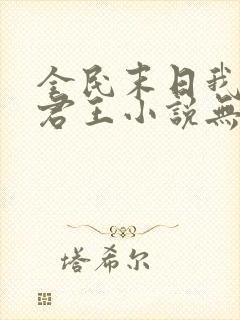 全民末日我
君王小說無
塔希尔